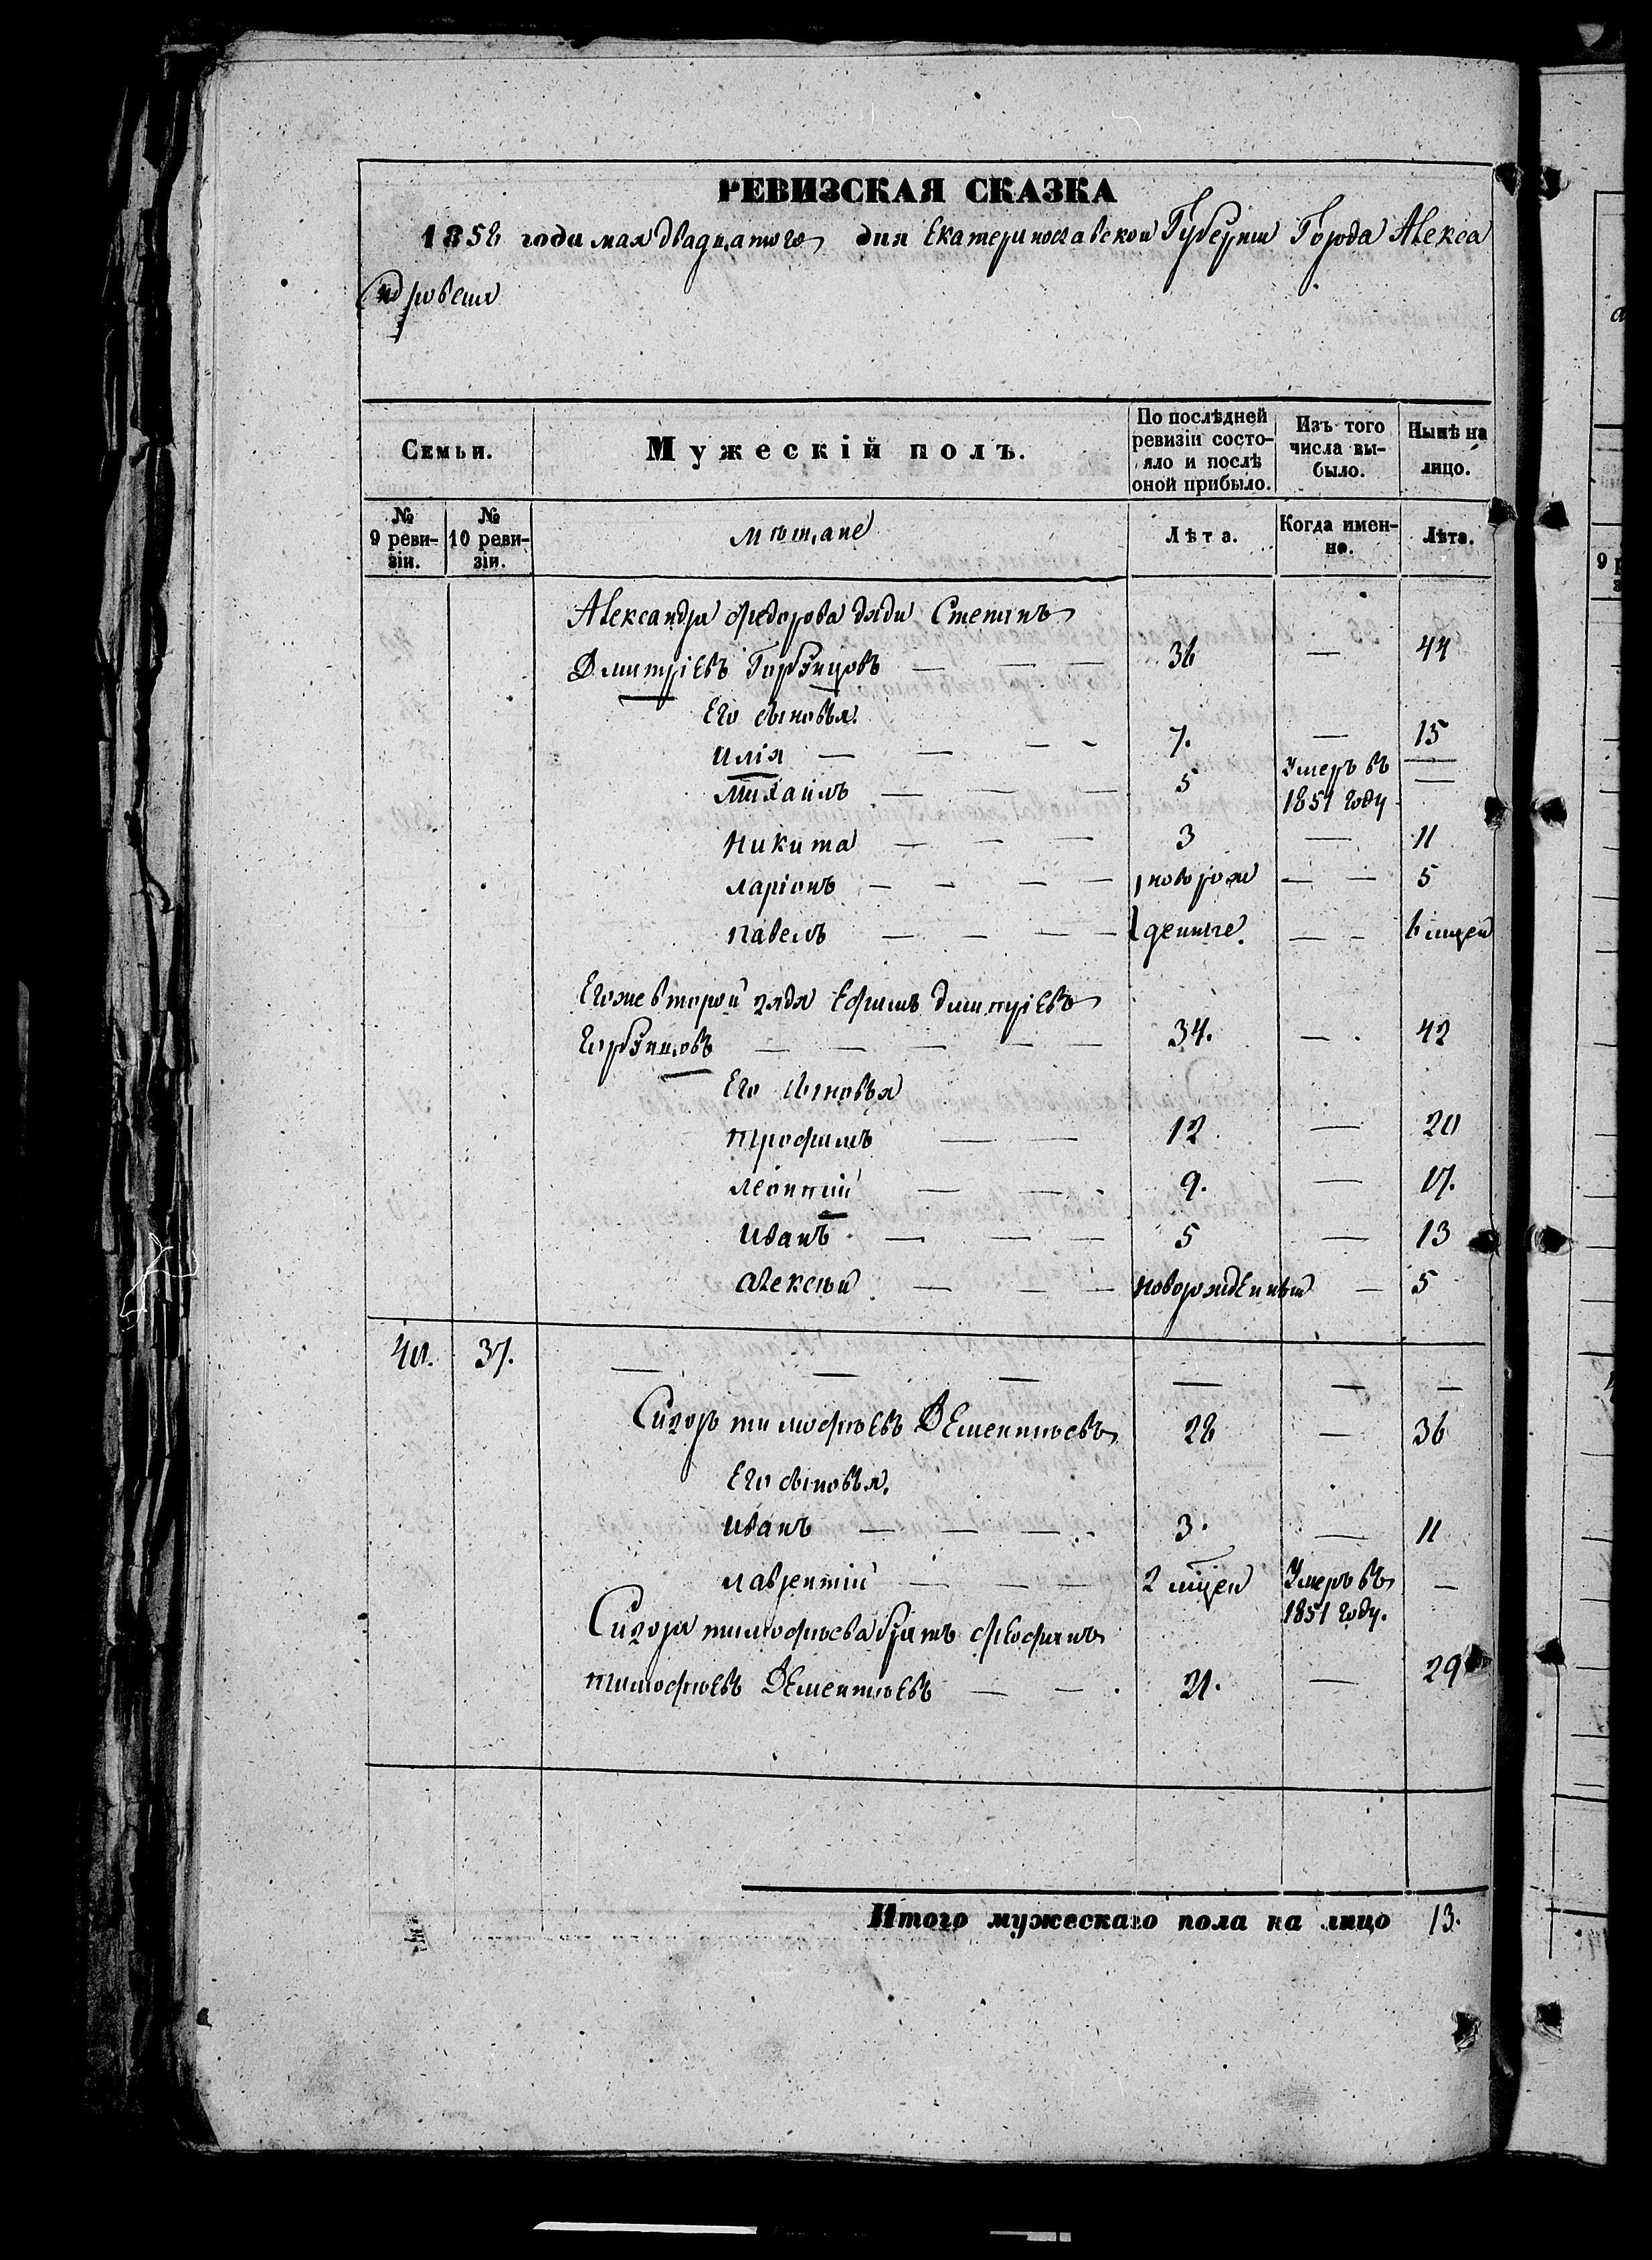 РЕВИЗСКАЯ СКАЗКА
1858 года мая двадцатого дня Екатеринославской Губернии Города Алекса
ндровска
Семьи. Мужескій полъ. По послѣдней ревизіи состояло и послѣ оной прибыло. Изъ того числа выбыло. Нынѣ на лицо.
№ 9 ревизіи. № 10 ревизіи. мѣщане Лѣта. Когда именно. Лѣта.
Александра Федорова дядя Степанъ
Дмитріевъ Горбунцовъ — — — 36 — 44
Его сыновья.
Илія — — — - 7. — 15
Михаилъ — — — — 5 Умеръ въ 1851 году —
Никита — — — 3 — 11
Ларіонъ — - — — новорож — — 5
Павелъ — — — — денные. — - 6 мцей
Егоже второй дядя Ефимъ Дмитріевъ
Горбунцовъ — — — — — 34. — . 42
Его сыновья
Трофимъ — — 12 — 20
Леонтій — — . 9. — 17.
Иванъ . — — — 5 — 13
Алексѣй — — — новорожденный — 5
40. 37. — — — — — —
Сидоръ Тимофѣевъ Дементьевъ 28 — 36
Его сыновья.
Иванъ — — — - 3. — 11
Лаврентій — — — 2 мцей Умеръ въ 1851 году. —
Сидора Тимофѣева братъ Феофанъ
Тимофѣевъ Дементьевъ — — . 21. — 29
Итого мужескаго пола на лицо 13.